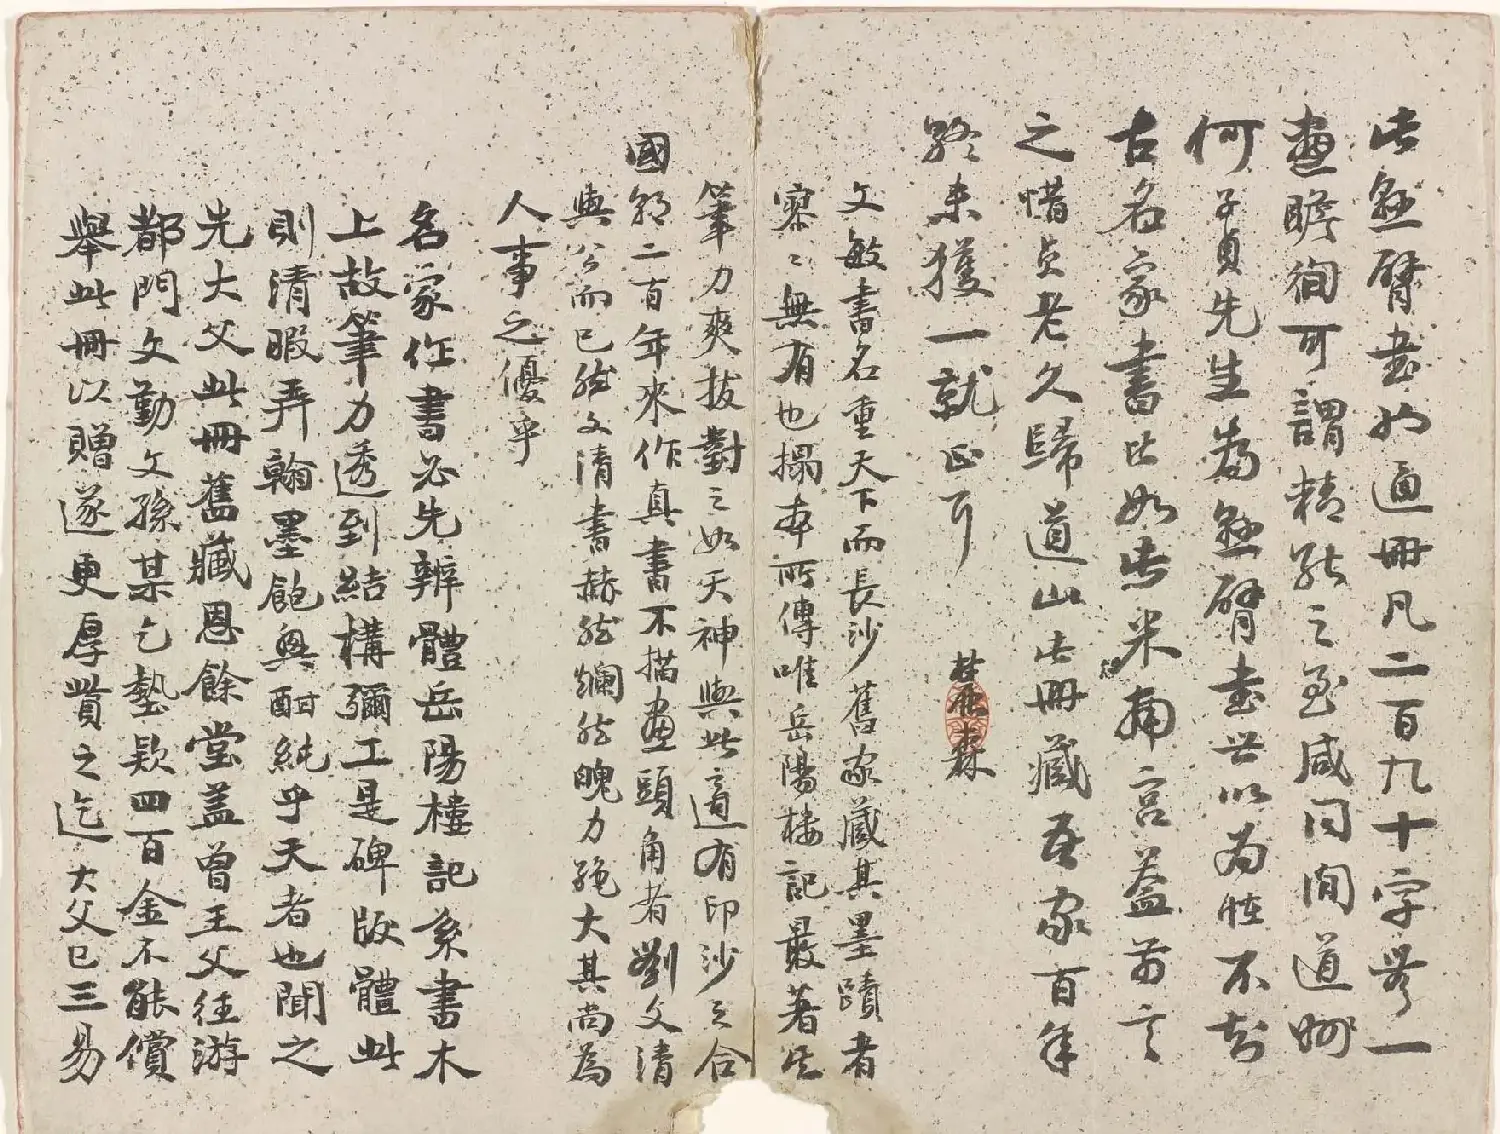 此懸臂書也通冊凡二百九十字無一
畫瞻徇可謂精能之至咸同間道州
何子貞先生為懸臂書世以為怪不知
古名家書皆如此米南宮蓋嘗言
之惜貞老久歸道山此冊藏吾家百年
終未獲一就正耳
文敏書名重天下而長沙舊家藏其墨蹟者
寥〻無有也搨本所傳唯岳陽樓記最著然
筆力爽拔對之如天神與此適有印沙之合
國朝二百年來作真書不描畫頭角者劉文清
與公而已然文清書赫然爛然魄力絶大其尚為
人事之優乎
名家作書必先辨體岳陽樓記系書木
上故筆力透到結構彌工是碑版體此
則清暇弄翰墨飽興酣純乎天者也聞之
先大父此冊舊藏恩餘堂蓋曾王父往游
都門文勤文孫某乞墊欵四百金不能償
舉此冊以贈遂更厚貲之迄大父已三易